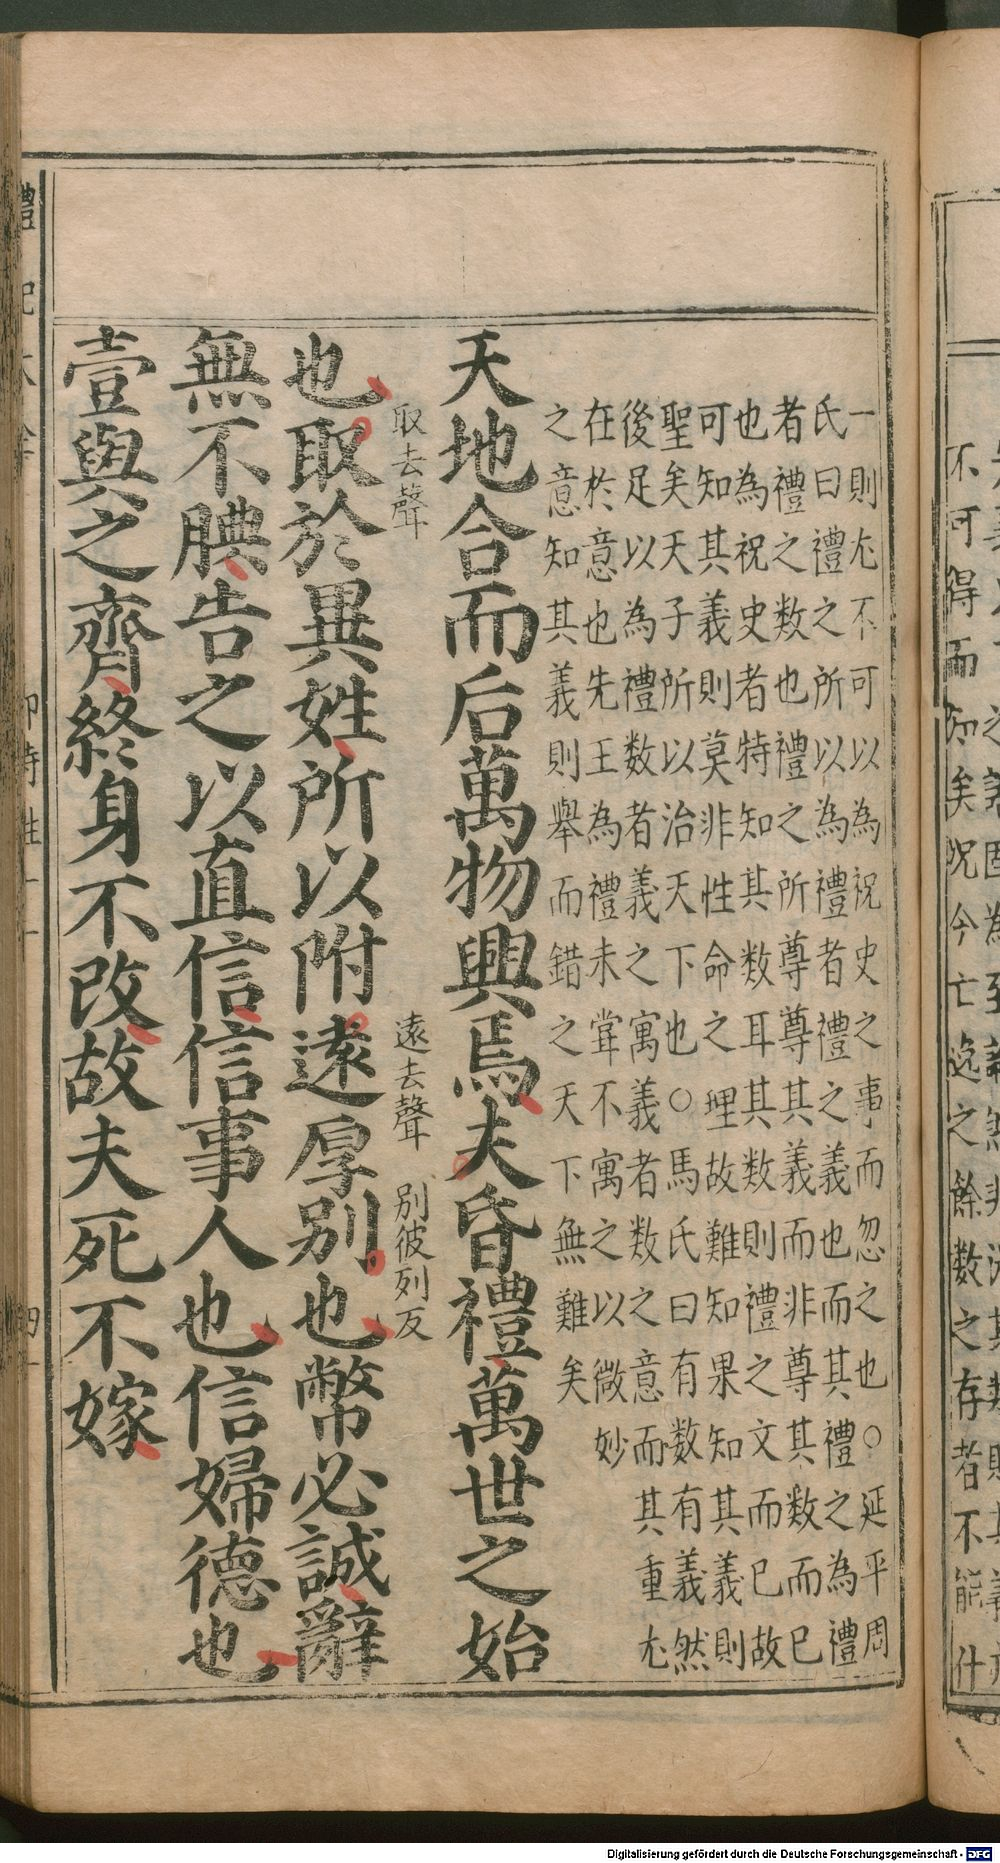 不可得而知矣况今亡逸之餘数之存者不能什
一則尤不可以為祝史之事而忽之也○延平周
氏曰禮之所以為禮者禮之義也而其禮之為禮
者禮之数也禮之所尊尊其義而非尊其数而已
也為祝史者特知其数耳其数則禮之文而已故
可知其義則莫非性命之理故難知果知其義則
聖矣天子所以治天下也○馬氏曰有数有義然
後足以為禮数者義之寓義者数之意而其重尤
在於意也先王為禮未甞不寓之以微妙
之意知其義則舉而錯之天下無難矣
天地合而后萬物興焉夫昏禮萬世之始
取去聲 遠去聲 別彼列反
也取於異姓所以附遠厚別也幣必誠辭
無不腆告之以直信信事人也信婦德也
壹與之齊終身不改故夫死不嫁